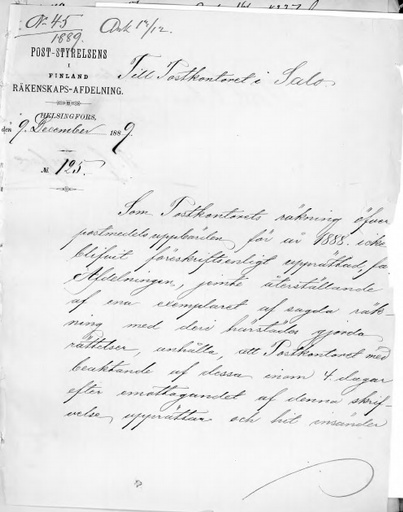 N:o 45
1889.
Ank 17/12.
POST-STYRELSENS
I
FINLAND
RÄKENSKAPS-AFDELNING.
HELSINGFORS,
den 9 December 1889.
№ 125.
Till Postkontoret i Salo
Som Postkontorets räkning öfver
postmedelsuppbörden för år 1888 icke
blifvit föreskriftsenligt upprättad, får
Afdelningen, jemte återställande
af ena exemplaret af sagda räk-
ning med deri härstädes gjorda
rättelser, anhålla, att Postkontoret med
beaktande af dessa inom 4 dagar
efter emottagandet af denna skrif-
velse upprättar och hit insänder